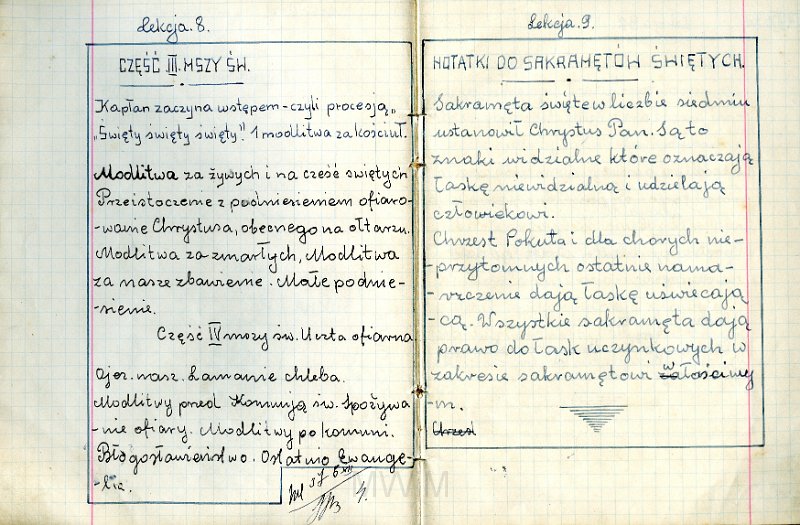 Lekcja. 8.
CZĘŚĆ III. MSZY ŚW.
Kapłan zaczyna wstępem - czyli procesją „
„Święty święty święty." 1 modlitwa za kościuł.
Modlitwa za żywych i na cześć świętych
Przeistoczenie z podniesieniem ofiaro-
-wanie Chrystusa, obecnego na ołtarzu.
Modlitwa za zmarłych, Modlitwa
za nasze zbawienie. Małe podnie-
-sienie.
Część IV mszy św. Uczta ofiarna
Ojcz. nasz. Łamanie chleba.
Modlitwy przed Komunją św. Spożywa
-nie ofiary. Modlitwy po komuni.
Błogosławieństwo. Ostatnio Ewange-
-lia.
MWM
Lekcja. 9.
NOTATKI DO SAKRAMĘTÓW ŚWIĘTYCH.
Sakramęta święte w liczbie siedmiu
ustanowił Chrystus Pan. Są to
znaki widzialne które oznaczają
łaskę niewidzialną i udzielają
człowiekowi.
Chrzest Pokuta i dla chorych nie-
-przytomnych ostatnie nama-
-szczenie dają łaskę uświecają
-cą. Wszystkie sakramęta dają
prawo do łask uczynkowych w
zakresie sakramętowi właściwy
-m.
Chrzest